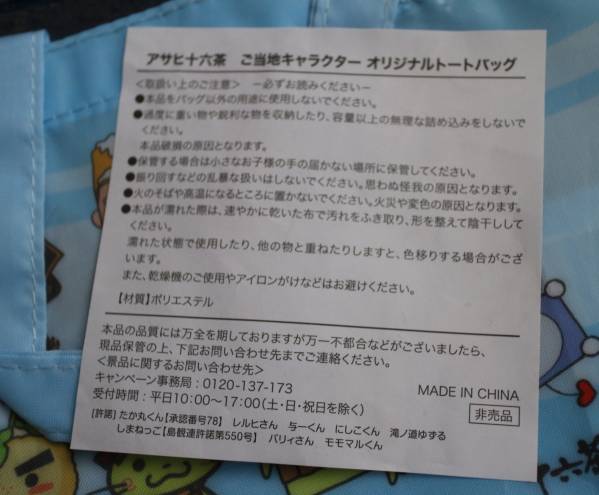 アサヒ十六茶　ご当地キャラクター オリジナルトートバッグ
＜取扱い上のご注意＞　－必ずお読みください－
●本品をバッグ以外の用途に使用しないでください。
●過度に重い物や鋭利な物を収納したり、容量以上の無理な詰め込みをしないで
ください。
本品破損の原因となります。
●保管する場合は小さなお子様の手の届かない場所に保管してください。
●振り回すなどの乱暴な扱いはしないでください。思わぬ怪我の原因となります。
●火のそばや高温になるところに置かないでください。火災や変色の原因となります。
●本品が濡れた際は、速やかに乾いた布で汚れをふき取り、形を整えて陰干しして
ください。
濡れた状態で使用したり、他の物と重ねたりしますと、色移りする場合がござ
います。
また、乾燥機のご使用やアイロンがけなどはお避けください。
【材質】ポリエステル
本品の品質には万全を期しておりますが万一不都合などがございましたら、
現品保管の上、下記お問い合わせ先までご連絡ください。
＜景品に関するお問い合わせ先＞
キャンペーン事務局：0120-137-173
受付時間：平日10:00～17:00(土・日・祝日を除く)
MADE IN CHINA
非売品
[許諾] たか丸くん【承認番号78】　レルヒさん　与一くん　にしこくん　滝ノ道ゆずる
しまねっこ【島観連許諾第550号】　バリィさん　モモマルくん